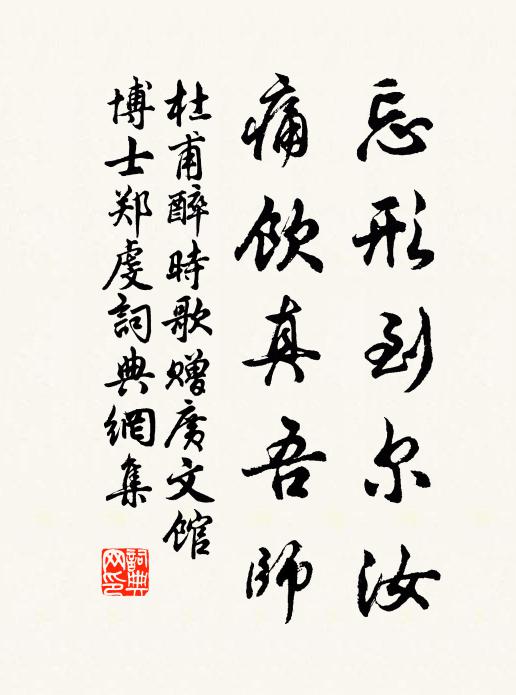 忘形到尔汝
痛饮真吾师
杜甫醉時歌赠廣文馆
博士郑虔詞典網集
詞典
网印